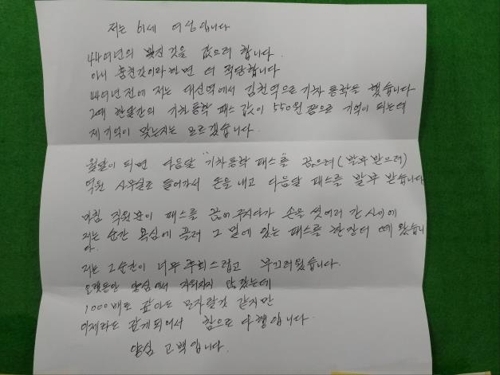 저는 61세 여성입니다
44여년의 빚진 것을 갚으려 합니다.
아니 훔친것이라 하면 더 적당합니다
44여년 전에 저는 대신역에서 김천역으로 기차 통학을 했습니다
그때 한달간의 기차통학 패스 값이 550원 쯤으로 기억이 되는데
제 기억이 맞는지는 모르겠습니다.
월말이 되면 다음달 "기차통학 패스"를 끊으려 (발부 받으려)
역원 사무실로 들어가서 돈을 내고 다음달 패스를 발부 받습니다
마침 직원분이 패스를 끊어 주시다가 손을 씻으러 간 사이에
저는 순간 욕심에 끌려 그 옆에 있는 패스를 한 말더 떼 왔습니
다
저는 그 순간이 너무 후회스럽고 부끄러웠습니다.
오랫동안 양심에서 지워지지 않았는데
1000배로 갚아도 모자랄것 같지만
이제라도 갚게 되어서 참으로 다행입니다.
양심 고백입니다.